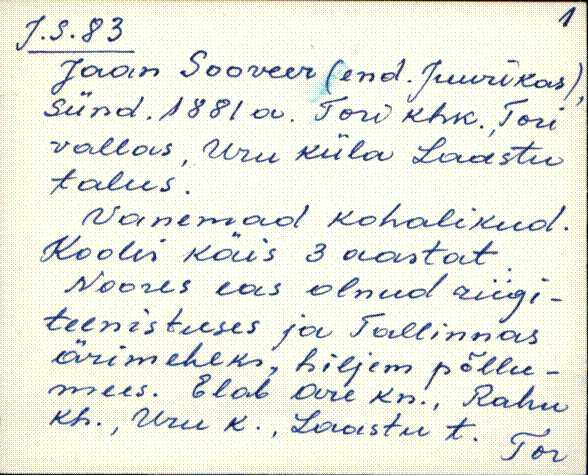 1
J.S.83
Jaan Sooveer (end. Juurikas),
sünd. 1881 a. Tori khk., Tori
vallas, Uru küla Laastu
talus.
Vanemad kohalikud.
Koolis käis 3 aastat.
Noores eas olnud riigi-
teenistuses ja Tallinnas
ärimeheks, hiljem põllu-
mees. Elab Are kn., Rahu
kh., Uru k., Laastu t.
Tor